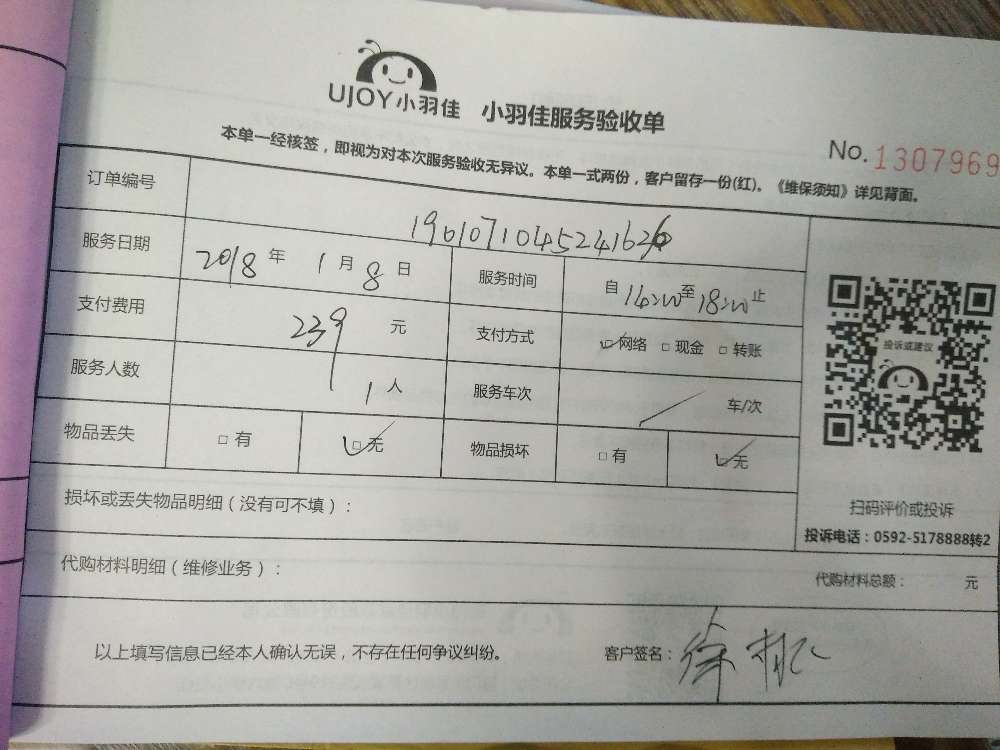 UJOY小羽佳 小羽佳服务验收单
No.1307969
本单一经核签，即视为对本次服务验收无异议。本单一式两份，客户留存一份(红)。《维保须知》详见背面。
订单编号 1961071045241626
服务日期 2018年1月8日 服务时间 自14:00至18:00止
支付费用 239元 支付方式 网络 现金 转账
服务人数 1人 服务车次 / 车/次
物品丢失 有 无 物品损坏 有 无
投诉或建议
扫码评价或投诉
投诉电话：0592-5178888转2
损坏或丢失物品明细（没有可不填）：
代购材料明细（维修业务）： 代购材料总额： 元
以上填写信息已经本人确认无误，不存在任何争议纠纷。 客户签名：徐